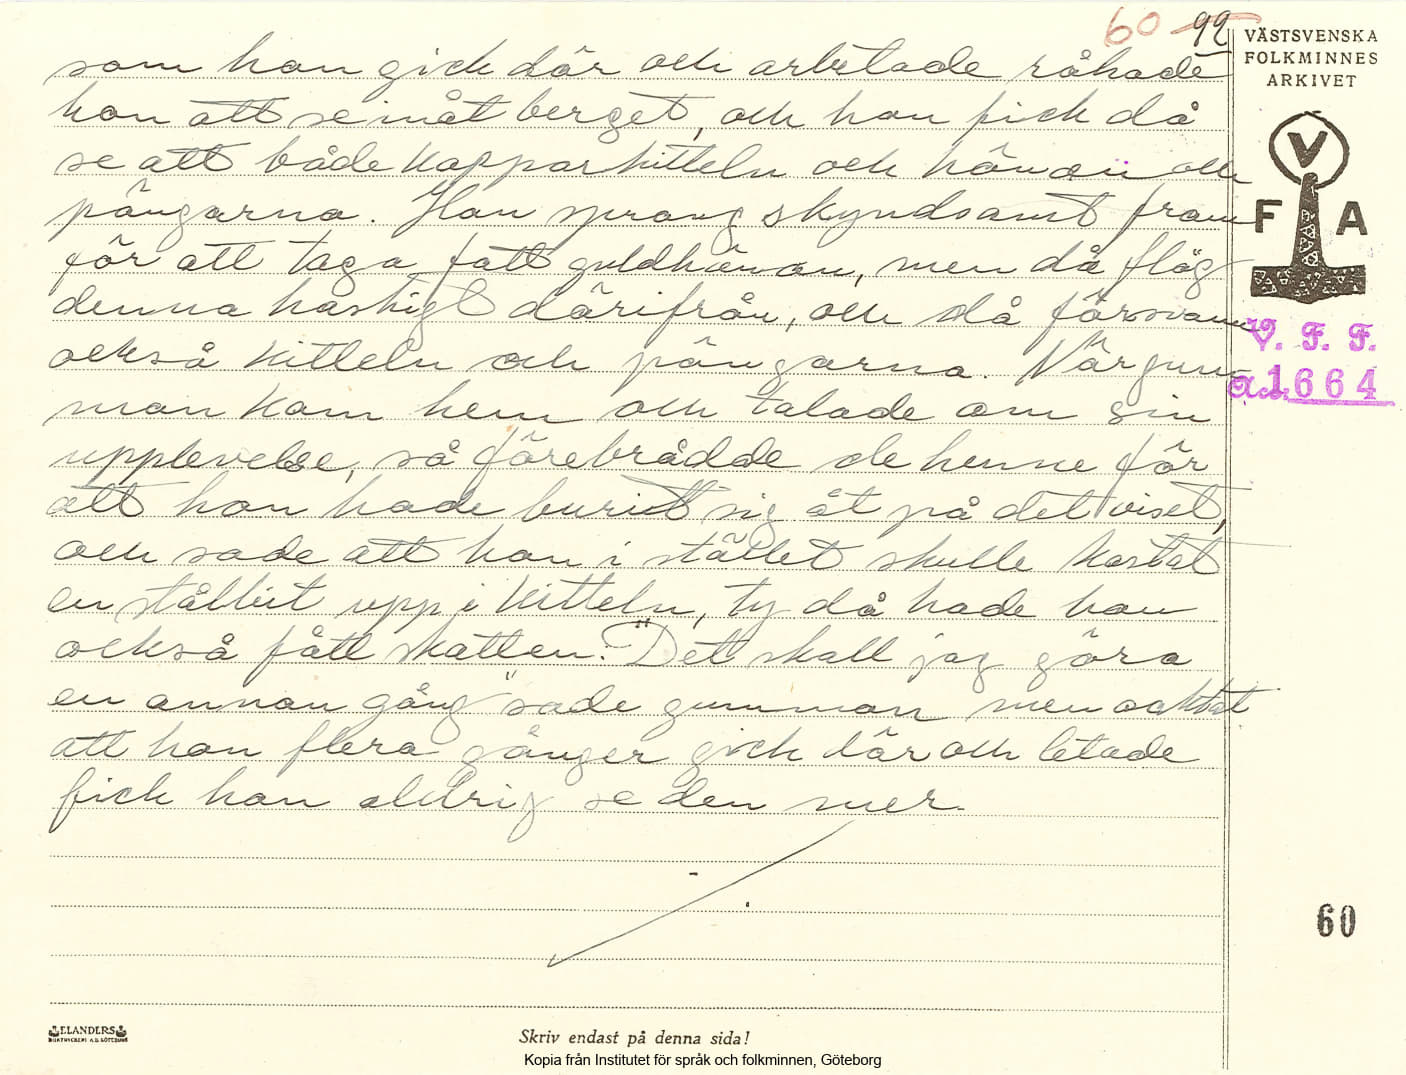 60 92
VÄSTSVENSKA
FOLKMINNES
ARKIVET
V
F A
V. F. F.
acc. 1664
som hon gick där och arbetade råkade
hon att se inåt berget, och hon fick då
se att både kopparkitteln och hönan och
pängarna. Hon sprang skyndsamt fram
för att taga fatt guldhönan, men då flög
denna hastigt därifrån, och då försvann
också kitteln och pängarna. När gum-
man kom hem och talade om sin
upplevelse, så förebrådde de henne för
att hon hade burit sig åt på det viset,
och sade att hon i stället skulle kastat
en stålbit upp i kitteln, ty då hade hon
också fått skatten. "Det skall jag göra
en annan gång" sade gumman men oaktat
att hon flera gånger gick där och letade
fick hon aldrig se den mer.
60
ELANDERS
BOKTRYCKERI A.B. GÖTEBORG
Skriv endast på denna sida!
Kopia från Institutet för språk och folkminnen, Göteborg